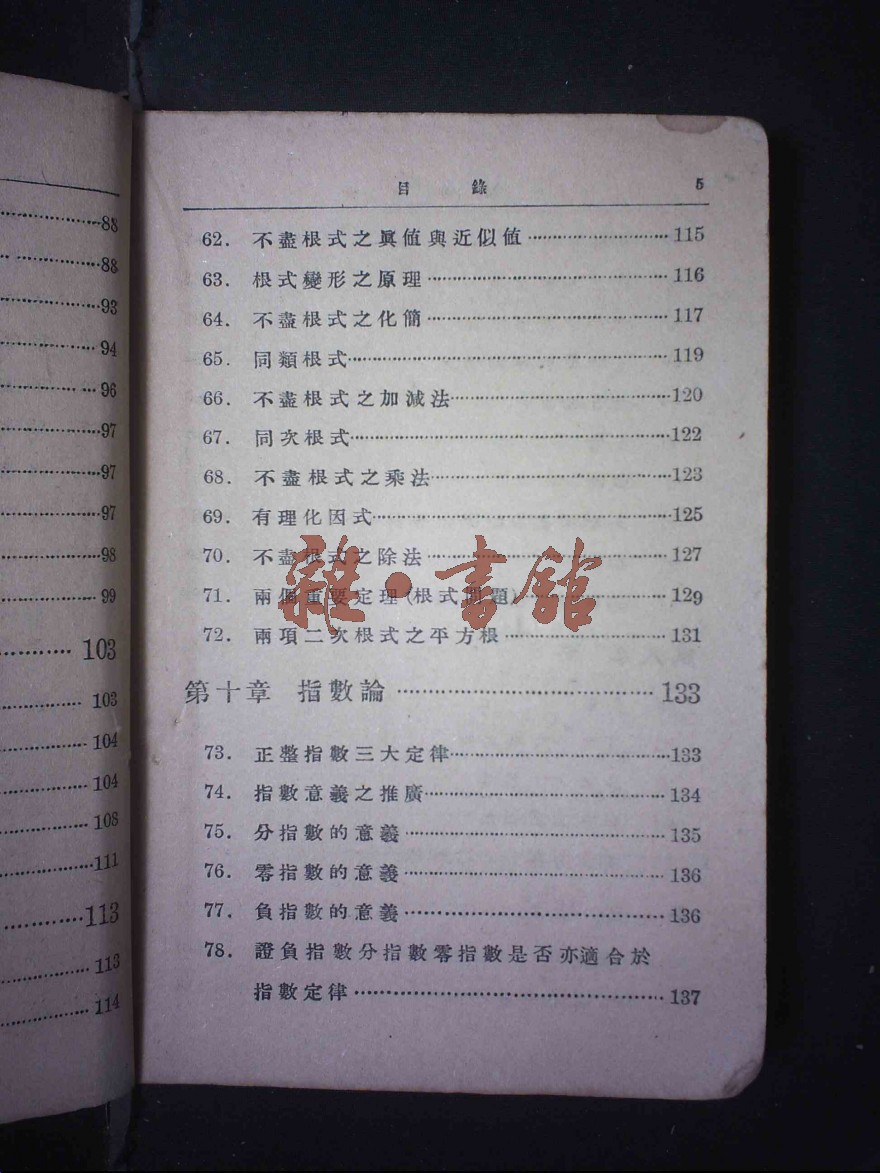 88
88
93
94
96
97
97
97
98
99
103
103
104
104
108
111
113
113
114
目錄 5
62. 不盡根式之眞值與近似值 115
63. 根式變形之原理 116
64. 不盡根式之化簡 117
65. 同類根式 119
66. 不盡根式之加減法 120
67. 同次根式 122
68. 不盡根式之乘法 123
69. 有理化因式 125
70. 不盡根式之除法 127
71. 兩個重要定理(根式問題) 129
72. 兩項二次根式之平方根 131
第十章 指數論 133
73. 正整指數三大定律 133
74. 指數意義之推廣 134
75. 分指數的意義 135
76. 零指數的意義 136
77. 負指數的意義 136
78. 證負指數分指數零指數是否亦適合於
指數定律 137
雜·書館